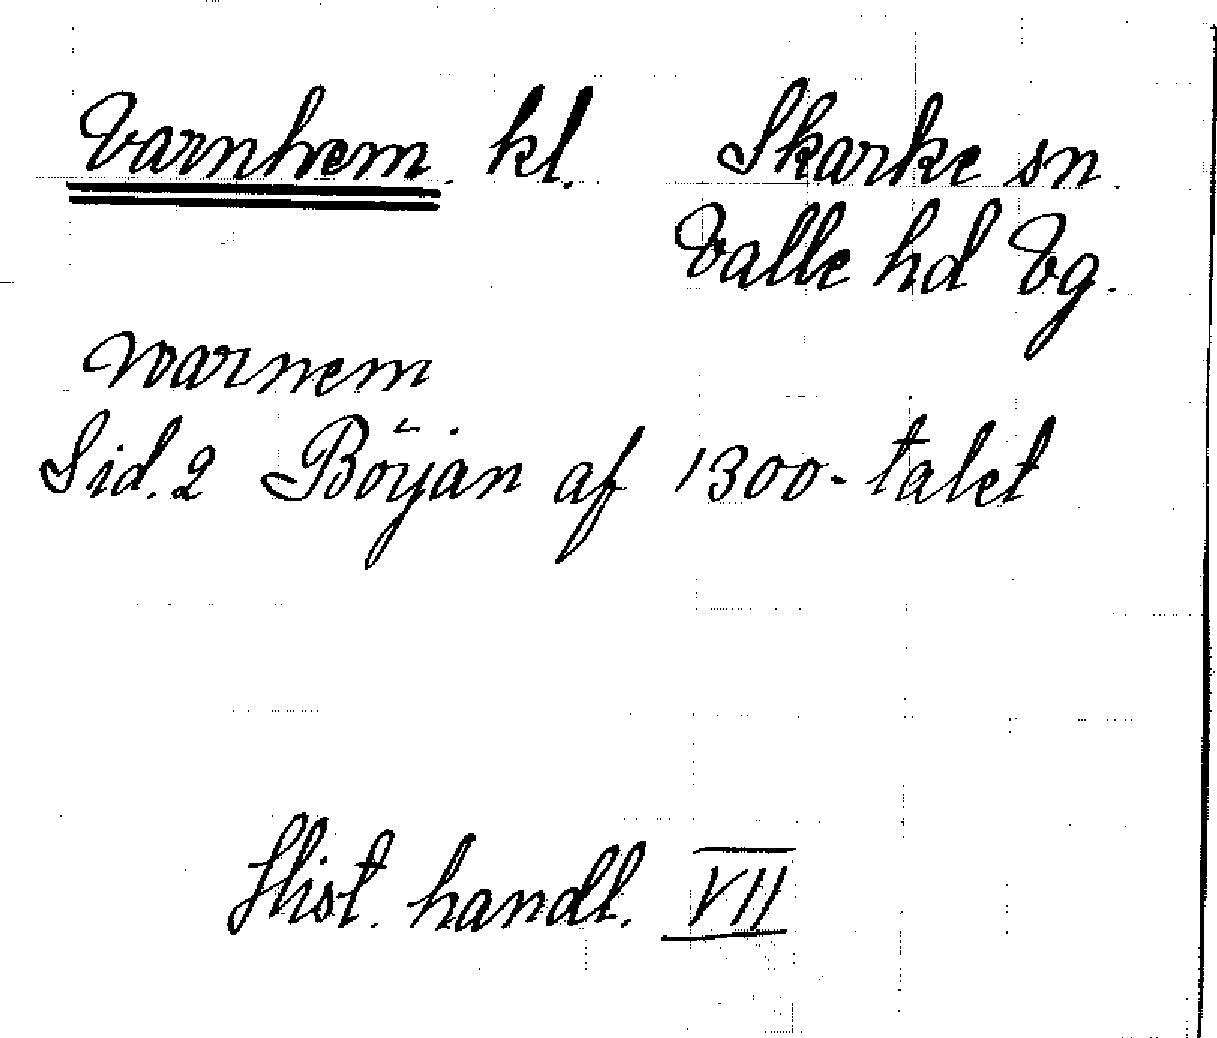 Varnhem. kl. Skarke sn.
Valle hd Vg.
warnem
Sid. 2 Början af 1300-talet
Hist. handl. VII